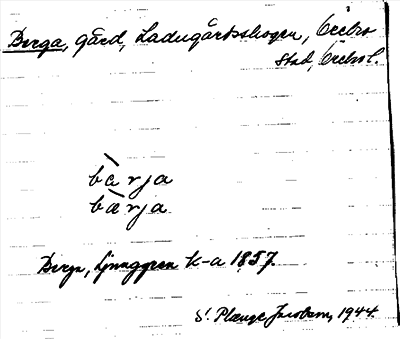 Berga, gård, Ladugårdsskogen, Örebro
stad, Örebro l.
bàrja
bärja
Berga, Ljunggren k-a 1857.
S. Plænge Jacobson, 1944.